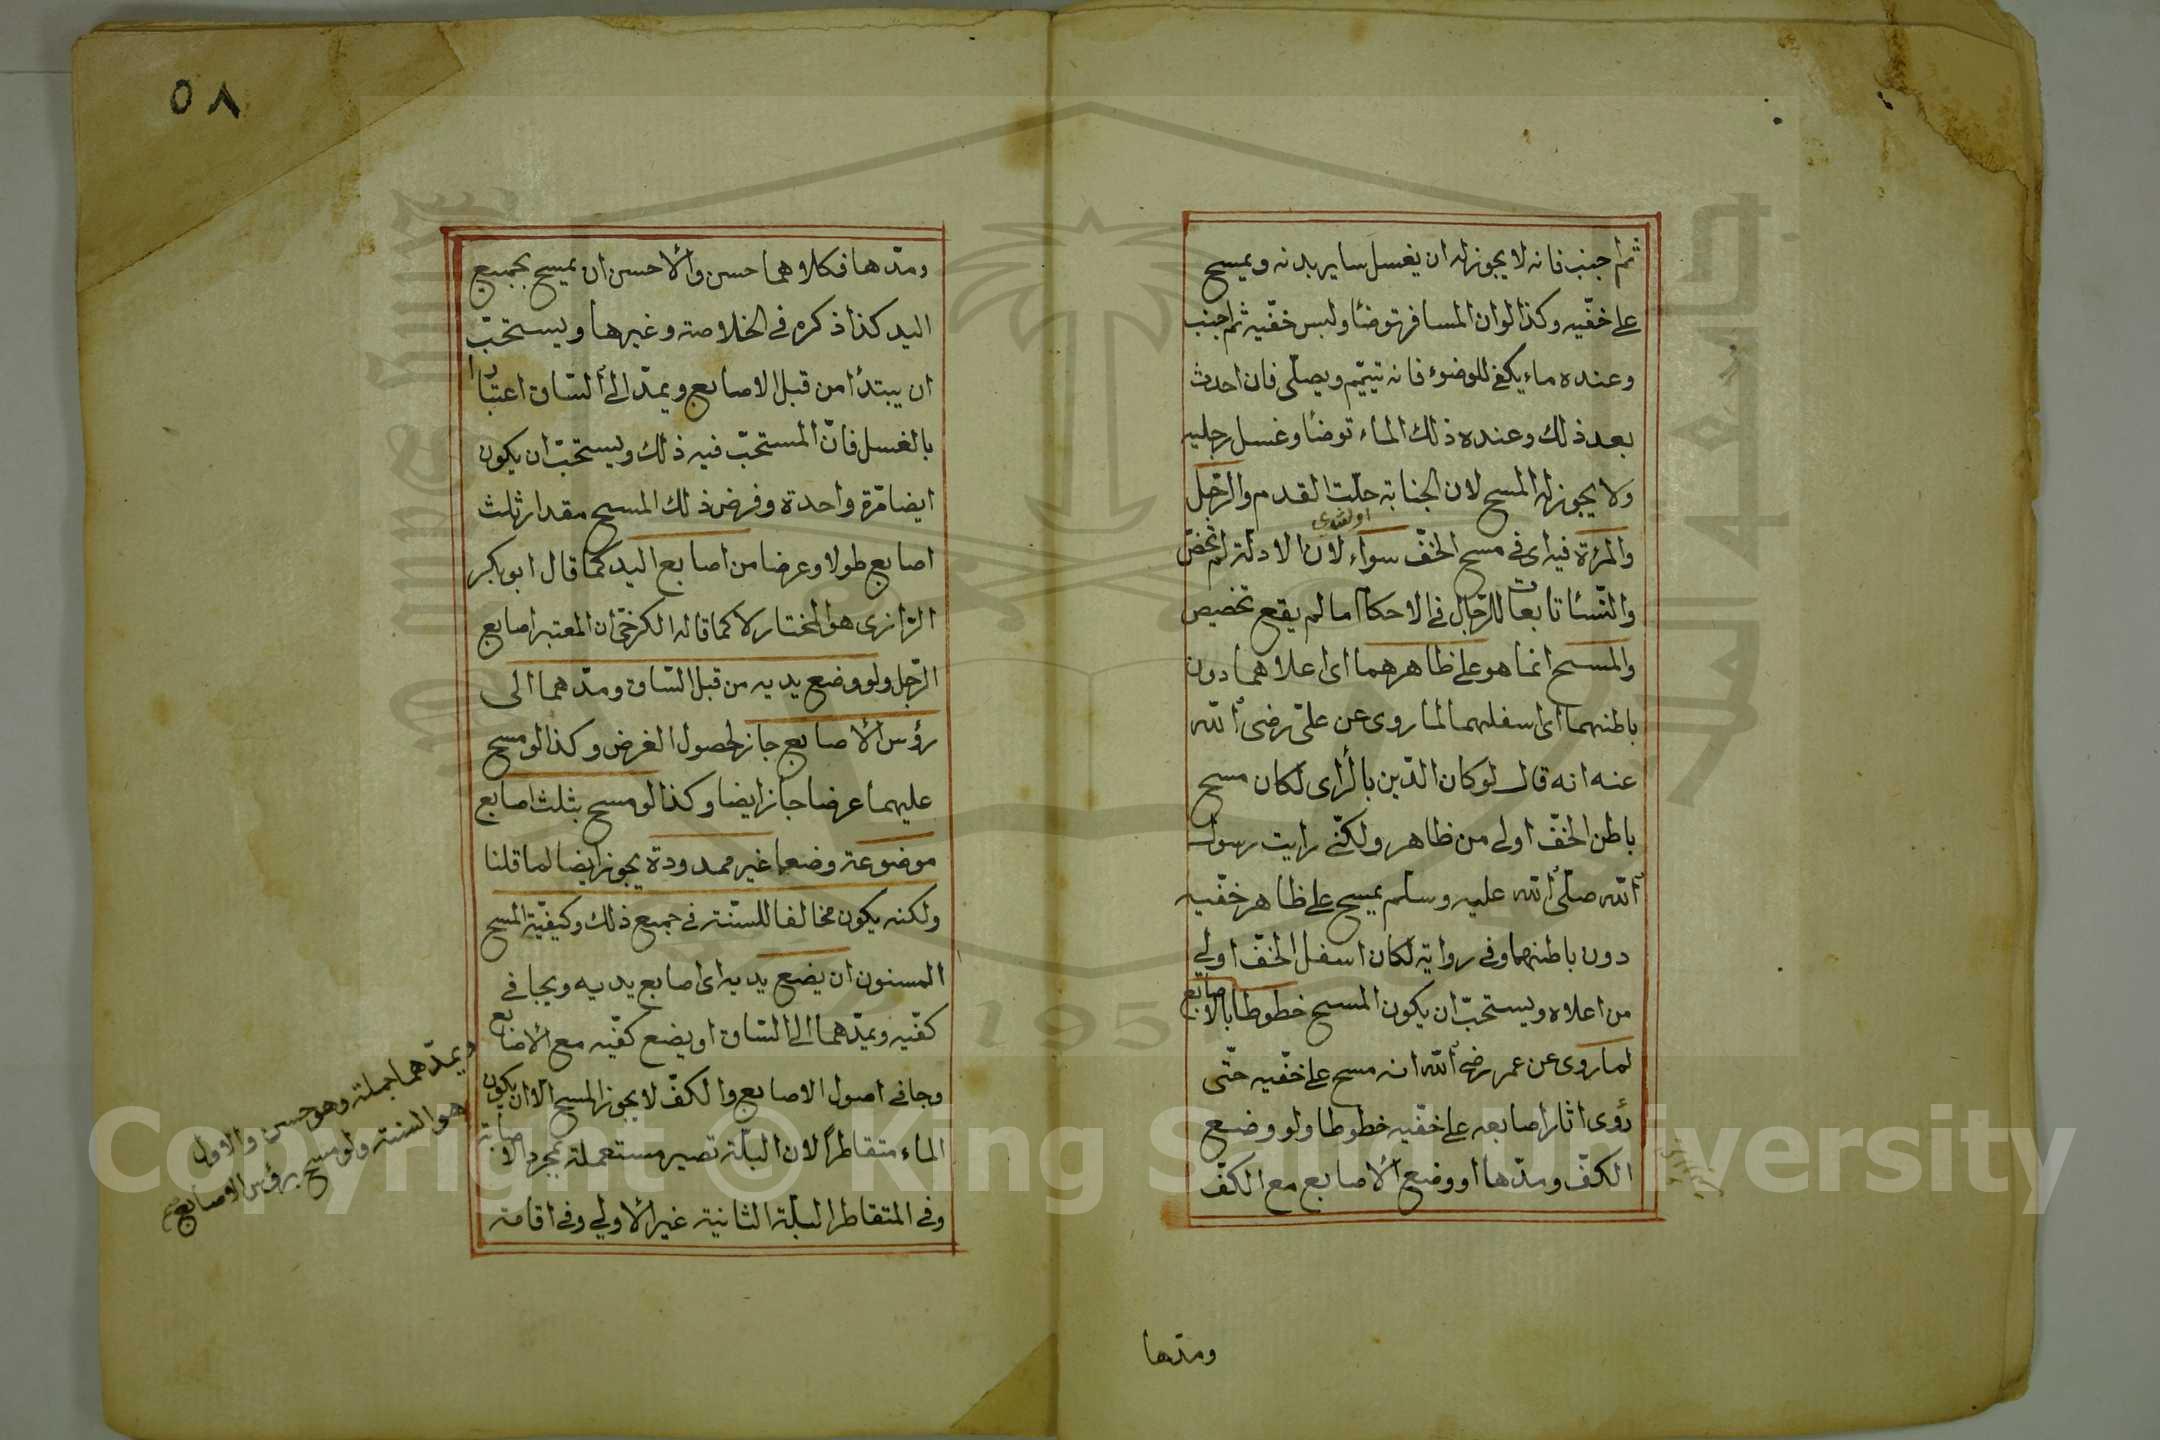 ثم اجنب فانه لا يجوز له ان يغسل ساير بدنه ويمسح
على خفّيه وكذا لو ان المسافر توضأ ولبس خفّيه ثم اجنب
وعنده ماء يكفى للوضوء فانه تيمّم ويصلّى فان احدث
بعد ذلك وعنده ذلك الماء توضأ وغسل رجليه
ولا يجوز له المسح لان الجنابة حلّت القدم والرّجل
والمرئة فيه اى فى مسح الخفّ سواء لان الادلة لم تخصّ
والنّساء تابعات للرّجال فى الاحكام ما لم يقع تخصيص
والمسح انما هو على ظاهرهما اى اعلاهما دون
باطنهما اى اسفلهما لما روى عن علىّ رضى الله
عنه انه قال لو كان الدّين بالرأى لكان مسح
باطن الخفّ اولى من ظاهر ولكنّى رايت رسول
الله صلّى الله عليه وسلم يمسح على ظاهر خفّيه
دون باطنهما وفى رواية لكان اسفل الخفّ اولى
من اعلاه ويستحبّ ان يكون المسح خطوطا بالاصابع
لما روى عن عمر رضى الله انه مسح على خفّيه حتّى
رؤى اثار اصابعه على خفّيه خطوطا ولو وضع
الكفّ ومدّها او وضع الاصابع مع الكفّ
ومدّها
٥٨
ومدّها فكلاهما حسن والاحسن ان يمسح بجميع
اليد كذا ذكره فى الخلاصة وغيرها ويستحبّ
ان يبتدأ من قبل الاصابع ويمدّ الى السّاق اعتبارا
بالغسل فانّ المستحبّ فيه ذلك ويستحبّ ان يكون
ايضا مّرة واحدة وفرض ذلك المسح مقدار ثلث
اصابع طولا وعرضا من اصابع اليد كما قال ابو بكر
الرّازى هو المختار لا كما قاله الكرخىّ ان المعتبر اصابع
الرّجل ولو وضع يديه من قبل السّاق ومدّهما الى
رؤس الاصابع جاز لحصول الغرض وكذا لو مسح
عليهما عرضا جاز ايضا وكذا لو مسح بثلث اصابع
موضوعة وضعا غير ممدودة يجوز ايضا لما قلنا
ولكنه يكون مخالفا للسّنة فى جميع ذلك وكيفيّة المسح
المسنون ان يضع يديه اى اصابع يديه ويجافى
كفّيه ويمدّهما الى السّاق او يضع كفّيه مع الاصابع
ويمدّهما جملة وهو حسن والاول
هو السنة ولو مسح برؤس الاصابع
وجافى اصول الاصابع والكفّ لا يجوز المسح الا ان يكون
الماء متقاطرا لان البلّة تصير مستعملة بمجرد الاصابة
وفى المتقاطر البلّة الثانية غير الاولى وفى اقامة
Copyright © King Saud University
1957